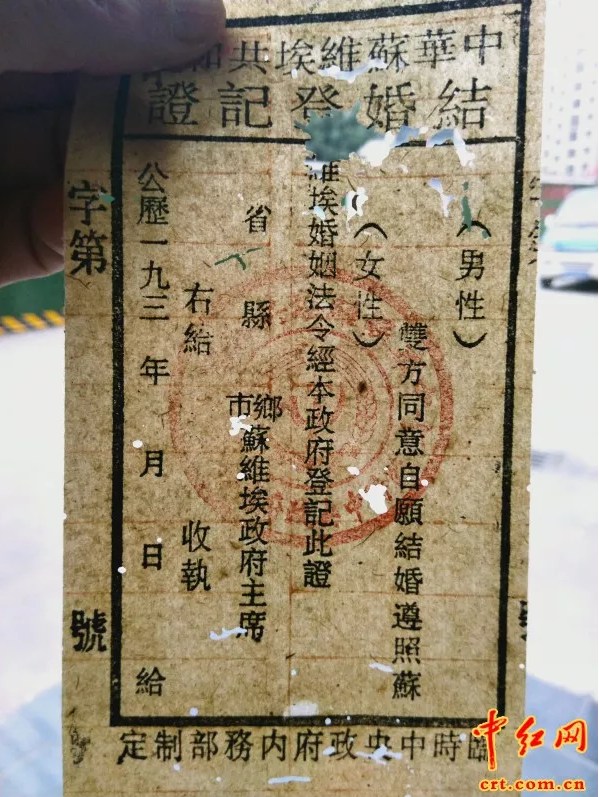 中華蘇維埃共和
結婚登記證
（男性）
雙方同意自願結婚遵照蘇
（女性）
維埃婚姻法令經本政府登記此證
省 縣 鄉市蘇維埃政府主席
右給 收執
公歷一九三 年 月 日 給
字第 號
臨時中央政府内務部制定
中红网
crt.com.cn